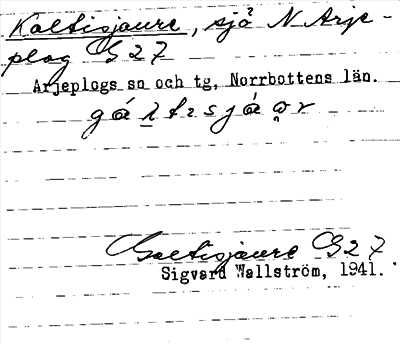 Kaltisjaure, sjö N Arje-
plog G 27
Arjeplogs sn och tg, Norrbottens län.
Galtisjaure G 27
Sigvard Wallström, 1941.